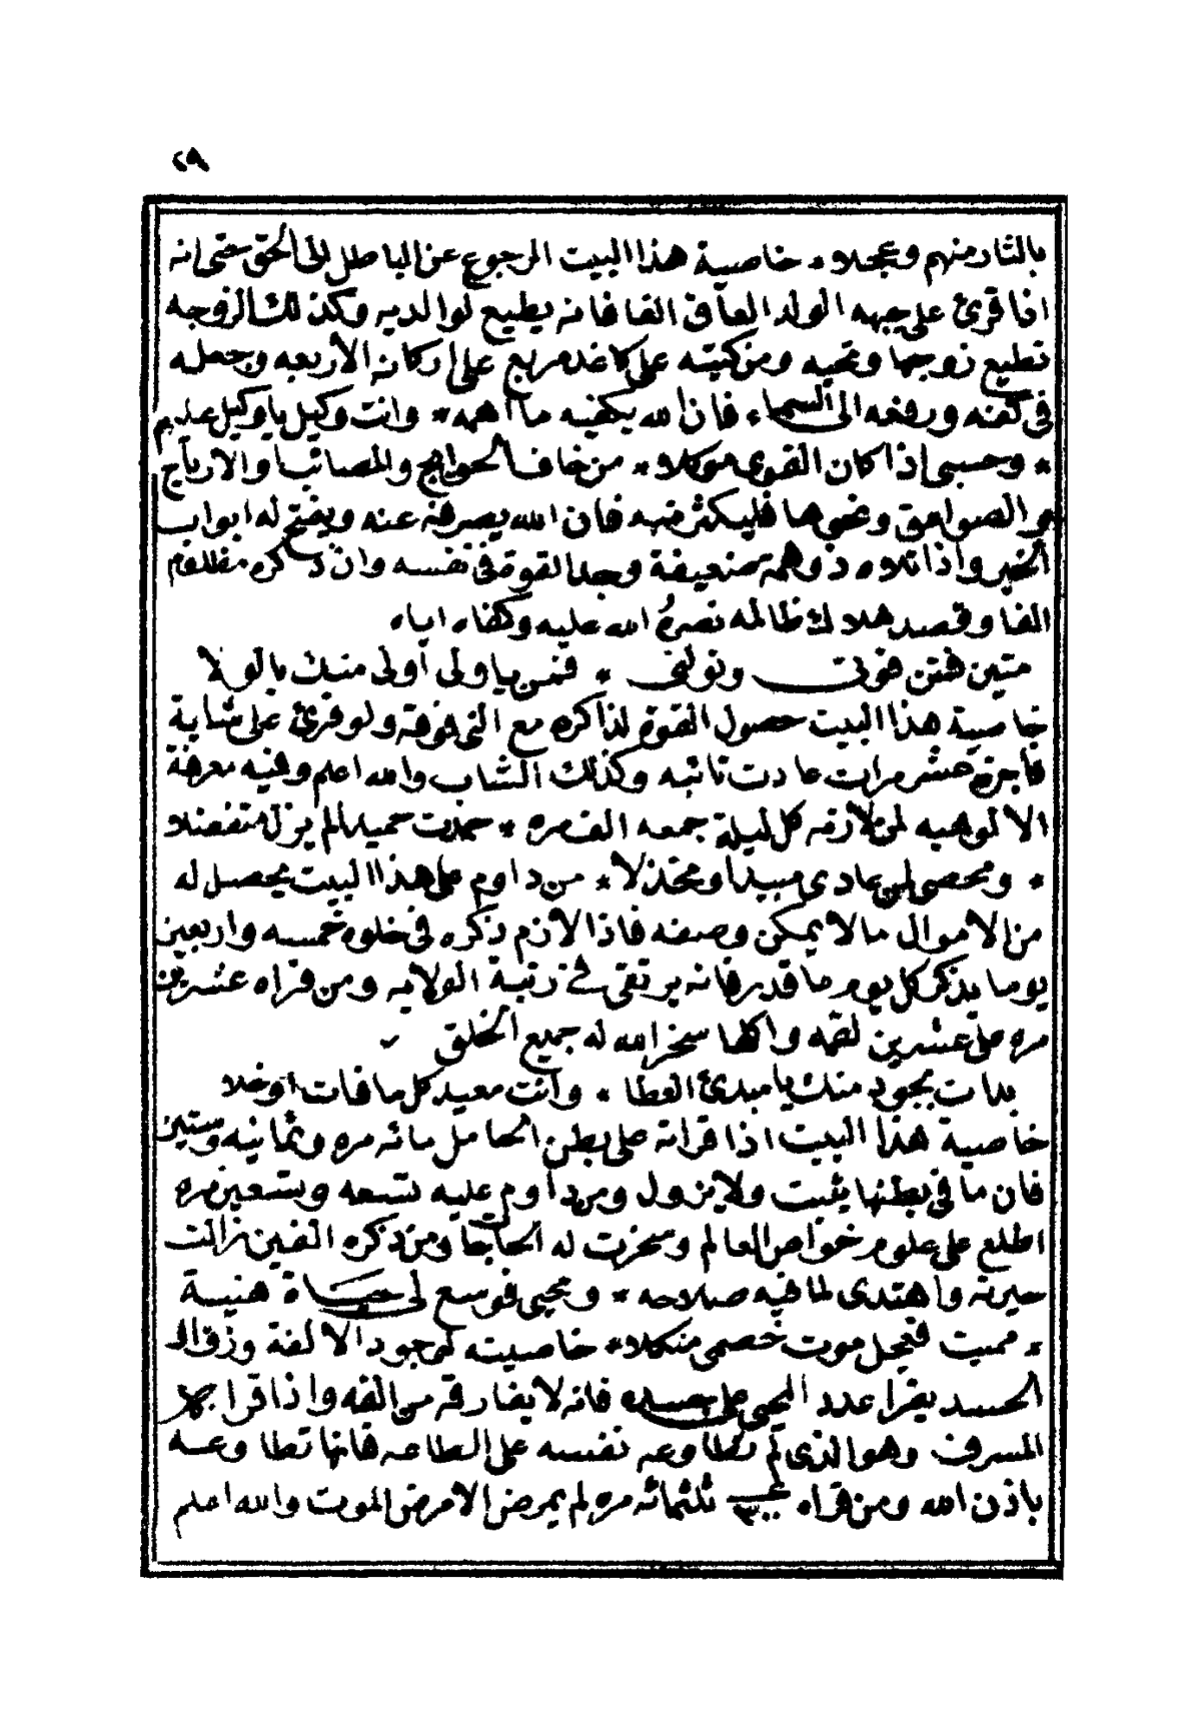 ٢٩
بالثار منهم وعجلا * خاصية هذا البيت الرجوع عن الباطل الى الحق حتى انه
اذا قرئ على جبهه الولد العاق الفا فانه يطيع لوالديه وكذلك الزوجه
تطيع زوجها وتحبه ومن كتبته على كاغد مربع على اركانه الأربعه وجعله
فى كفنه ورفعه الى السماء فان الله يكفيه ما اهمه * وانت وكيل يا وكيل عليهم
* وحسبى إذا كان القوى موكلا * من خاف الحوايج والمصائب والارياح
والصواعق ونحوها فليكثر منه فان الله يصرفه عنه ويفتح له ابواب
الخير واذا تلاه ذو همة ضعيفة وجد القوة فى نفسه وان ذكره مظلوم
الفا وقصد هلاك ظالمه نصره الله عليه وكفاه اياه
متين فمتن قوتى وتولنى * فمن يا ولى أولى منك بالولا
خاصية هذا البيت حصول القوه لذاكره مع التى فوقه ولو قرئ على شابة
فاجرة عشر مرات عادت تائبه وكذلك الشاب والله اعلم وفيه معرفة
الالوهيه لمن لازمه كل ليلة جمعه الف مره * حمدت حميدا لم يزل متفضلا
* ومحصى لمن عادى مبيدا ومخذلا * من داوم على هذا البيت يحصل له
من الاموال ما لا يمكن وصفه فاذا لازم ذكره فى خلوه خمسه واربعين
يوما يذكر كل يوم ما قدر فانه يرتقى فى رتبة الولايه ومن قراه عشرين
مره على عشرين لقمه واكلها سخر الله له جميع الخلق
بدات بجود منك يا مبدئ العطا * وانت معيد كل ما فات أو خلا
خاصية هذا البيت اذا قراته على بطن الحامل مائه مره وثمانيه وستين
فان ما فى بطنها يثبت ولا يزول ومن داوم عليه تسعه وتسعين مره
اطلع على علوم خواص العالم وسخرت له الحاجات ومن ذكره الفين زالت
حيرته واهتدى لما فيه صلاحه * ومحيى فوسع لى حياة هنية
* مميت فعجل موت خصمى منكلا * خاصيته لموجود الالفة وزق الـ
الحسد يقرا عدد المحيى على جسده فانه لا يفارقه من الفه واذا قرا
المسرف وهو الذى لم تطاوعه نفسه على الطاعه فانها تطاوعه
باذن الله ومن قراه عـــ ٣٠٠ ثلثمائه مره لم يمرض الا مرض الموت والله اعلم